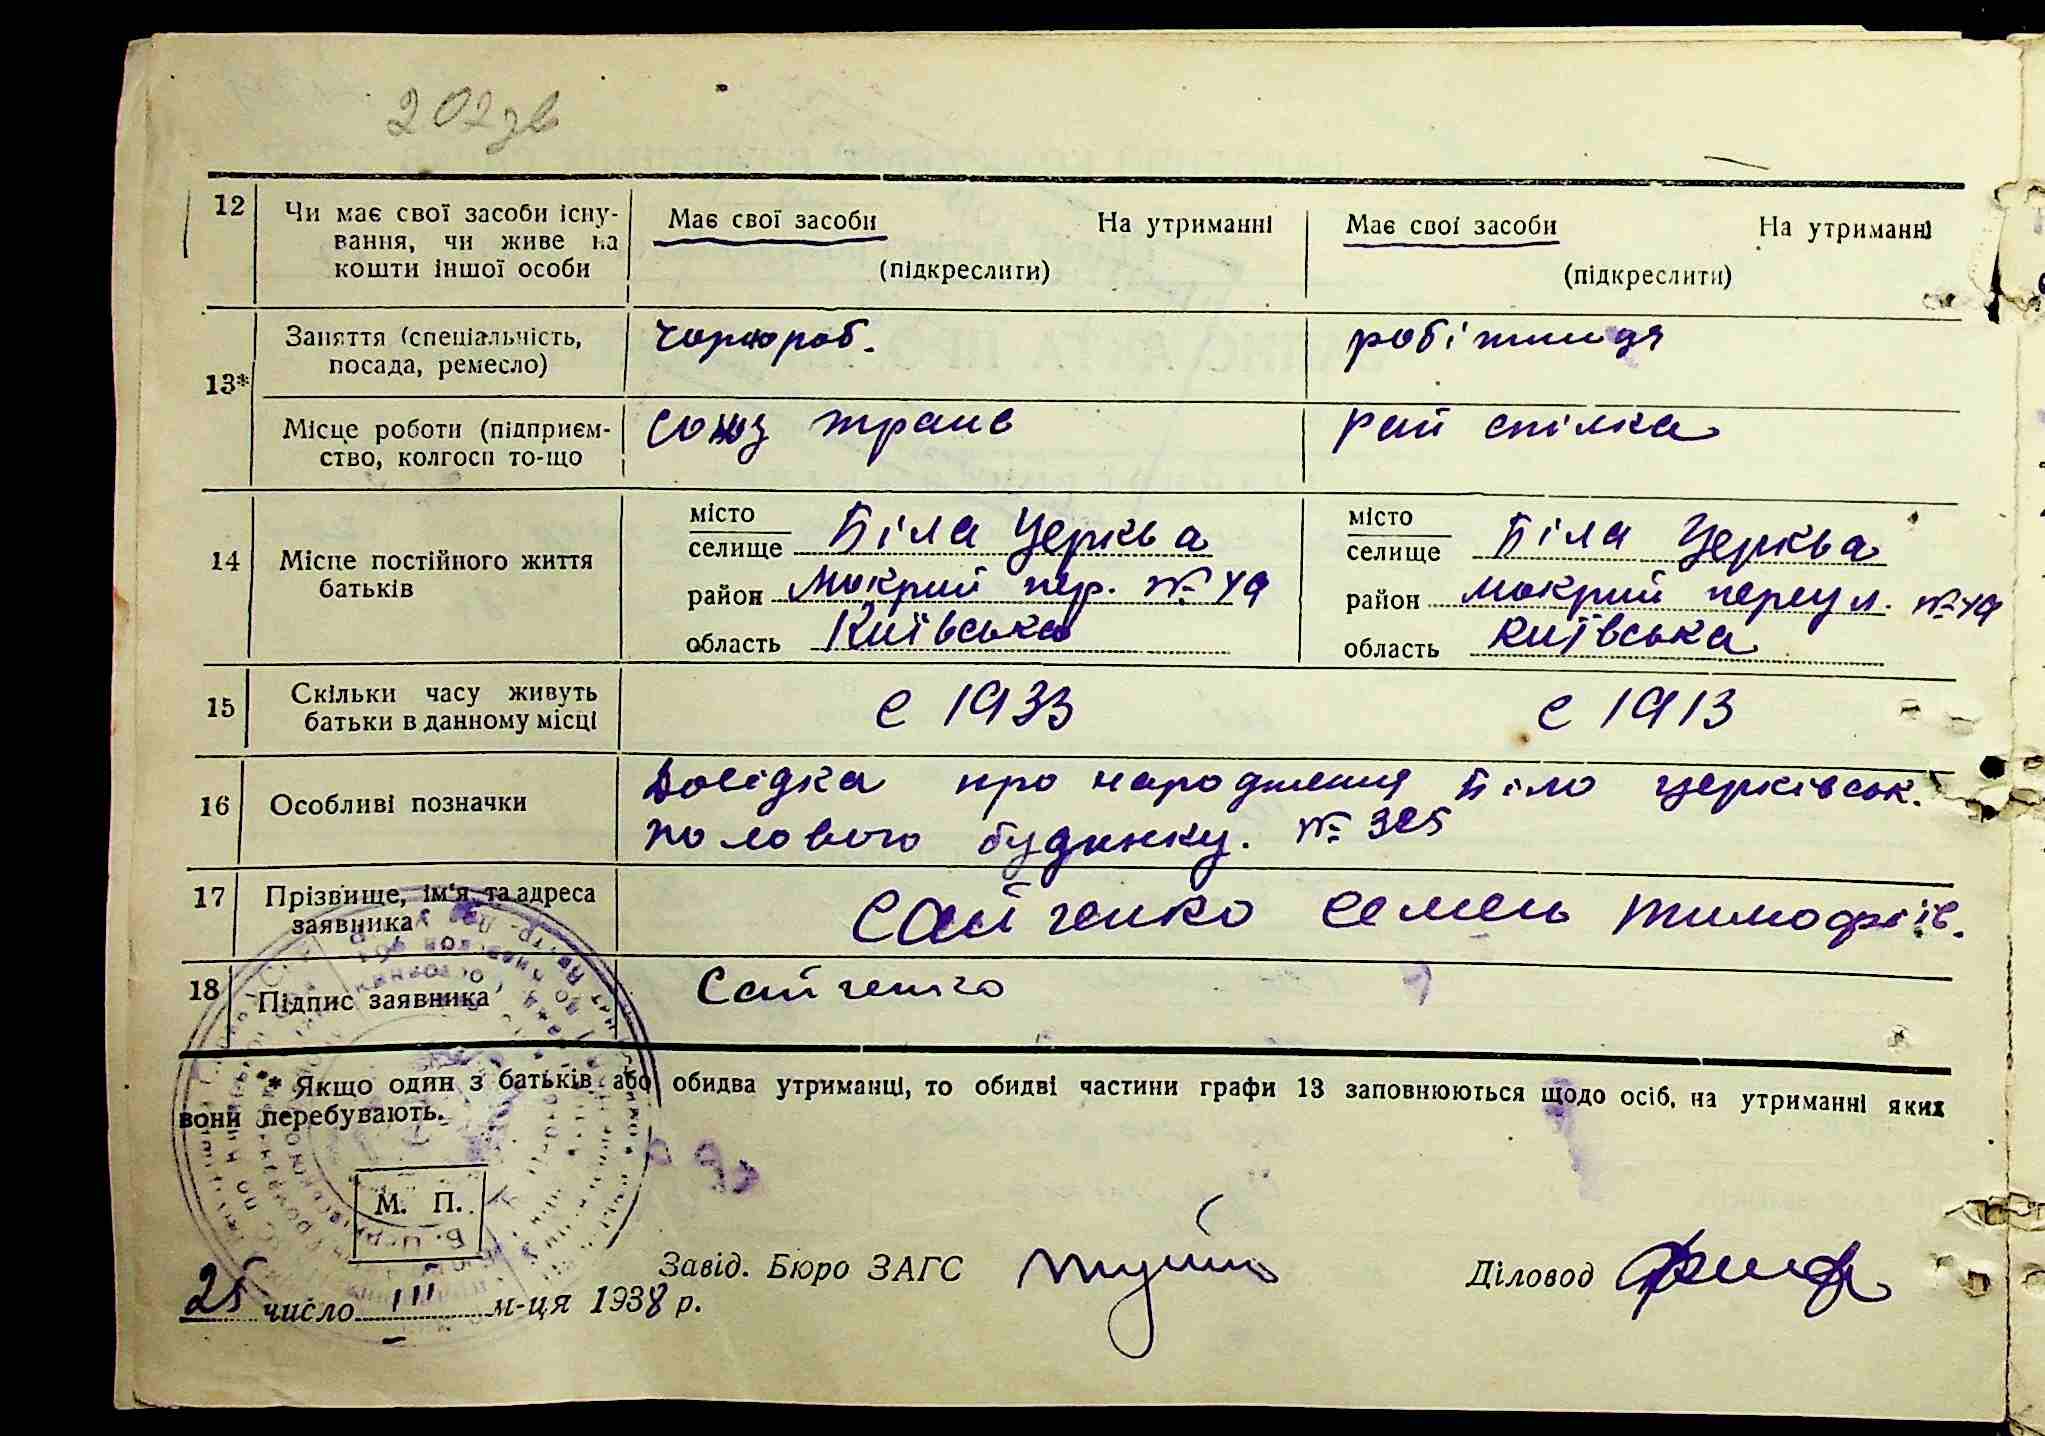 202зв
12 Чи має свої засоби існу- Має свої засоби На утриманні Має свої засоби На утриманні
вання, чи живе на
кошти іншої особи (підкреслити) (підкреслити)
13* Заняття (спеціальність, чорнороб. робітниця
посада, ремесло)
Місце роботи (підприєм- Союз транс Рай спілка
ство, колгосп то-що
14 Місце постійного життя батьків
місто Біла Церква місто Біла Церква
селище селище
район Мокрий пер. № 49 район Мокрий переул. № 49
область Київська область Київська
15 Скільки часу живуть с 1933 с 1913
батьки в данному місці
16 Особливі позначки Довідка про народження Біло церківськ.
полового будинку. № 325
17 Прізвище, ім'я та адреса Сайченко Семень Тимофіїв.
заявника
18 Підпис заявника Сайченко
* Якщо один з батьків або обидва утриманці, то обидві частини графи 13 заповнюються щодо осіб, на утриманні яких
вони перебувають.
М. П.
Завід. Бюро ЗАГС Діловод
25 число III м-ця 1938 р.